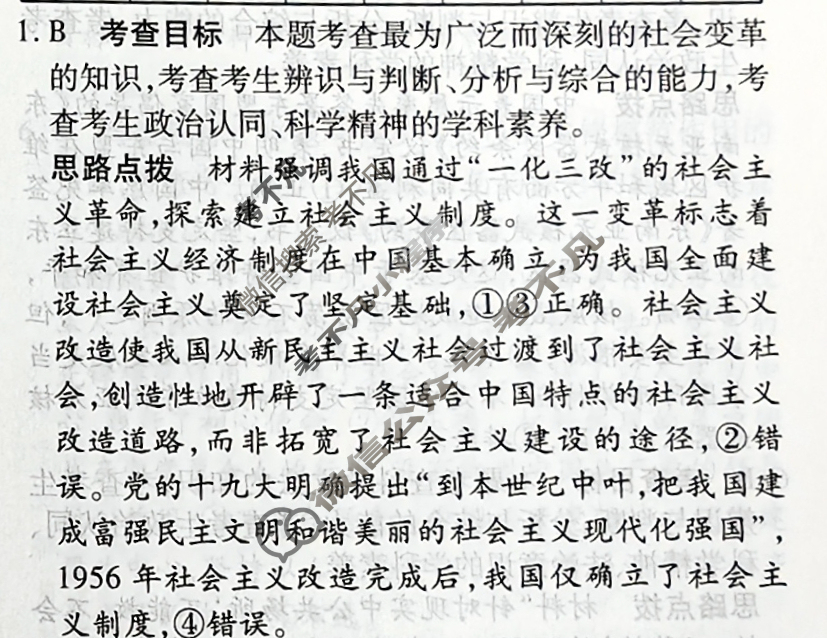 1. B 考查目标 本题考查最为广泛而深刻的社会变革
的知识,考查考生辨识与判断、分析与综合的能力,考
查考生政治认同、科学精神的学科素养。
思路点拨 材料强调我国通过“一化三改”的社会主
义革命,探索建立社会主义制度。这一变革标志着
社会主义经济制度在中国基本确立,为我国全面建
设社会主义奠定了坚定基础,①③正确。社会主义
改造使我国从新民主主义社会过渡到了社会主义社
会,创造性地开辟了一条适合中国特点的社会主义
改造道路,而非拓宽了社会主义建设的途径,②错
误。党的十九大明确提出“到本世纪中叶,把我国建
成富强民主文明和谐美丽的社会主义现代化强国”,
1956年社会主义改造完成后,我国仅确立了社会主
义制度,④错误。
微信搜索小程序
考不凡
考不凡
考不凡
微信公众号
考不凡